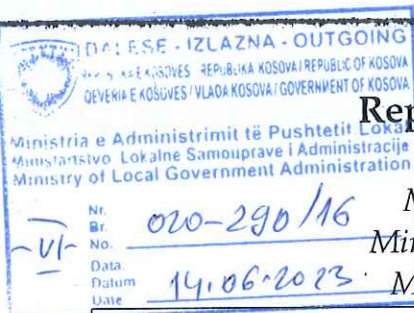 DALËSE - IZLAZNA - OUTGOING
REPUBLIKA KOSOVA / REPUBLIC OF KOSOVA
QEVERIA E KOSOVËS / VLADA KOSOVA / GOVERNMENT OF KOSOVA
Rep
Ministria e Administrimit të Pushtetit Lokal
Ministarstvo Lokalne Samouprave i Administracije
Ministry of Local Government Administration
Nr.
Br.
No.
020-290/16
-VI-
M
Min
M
Data.
Datum
Date
14.06.2023